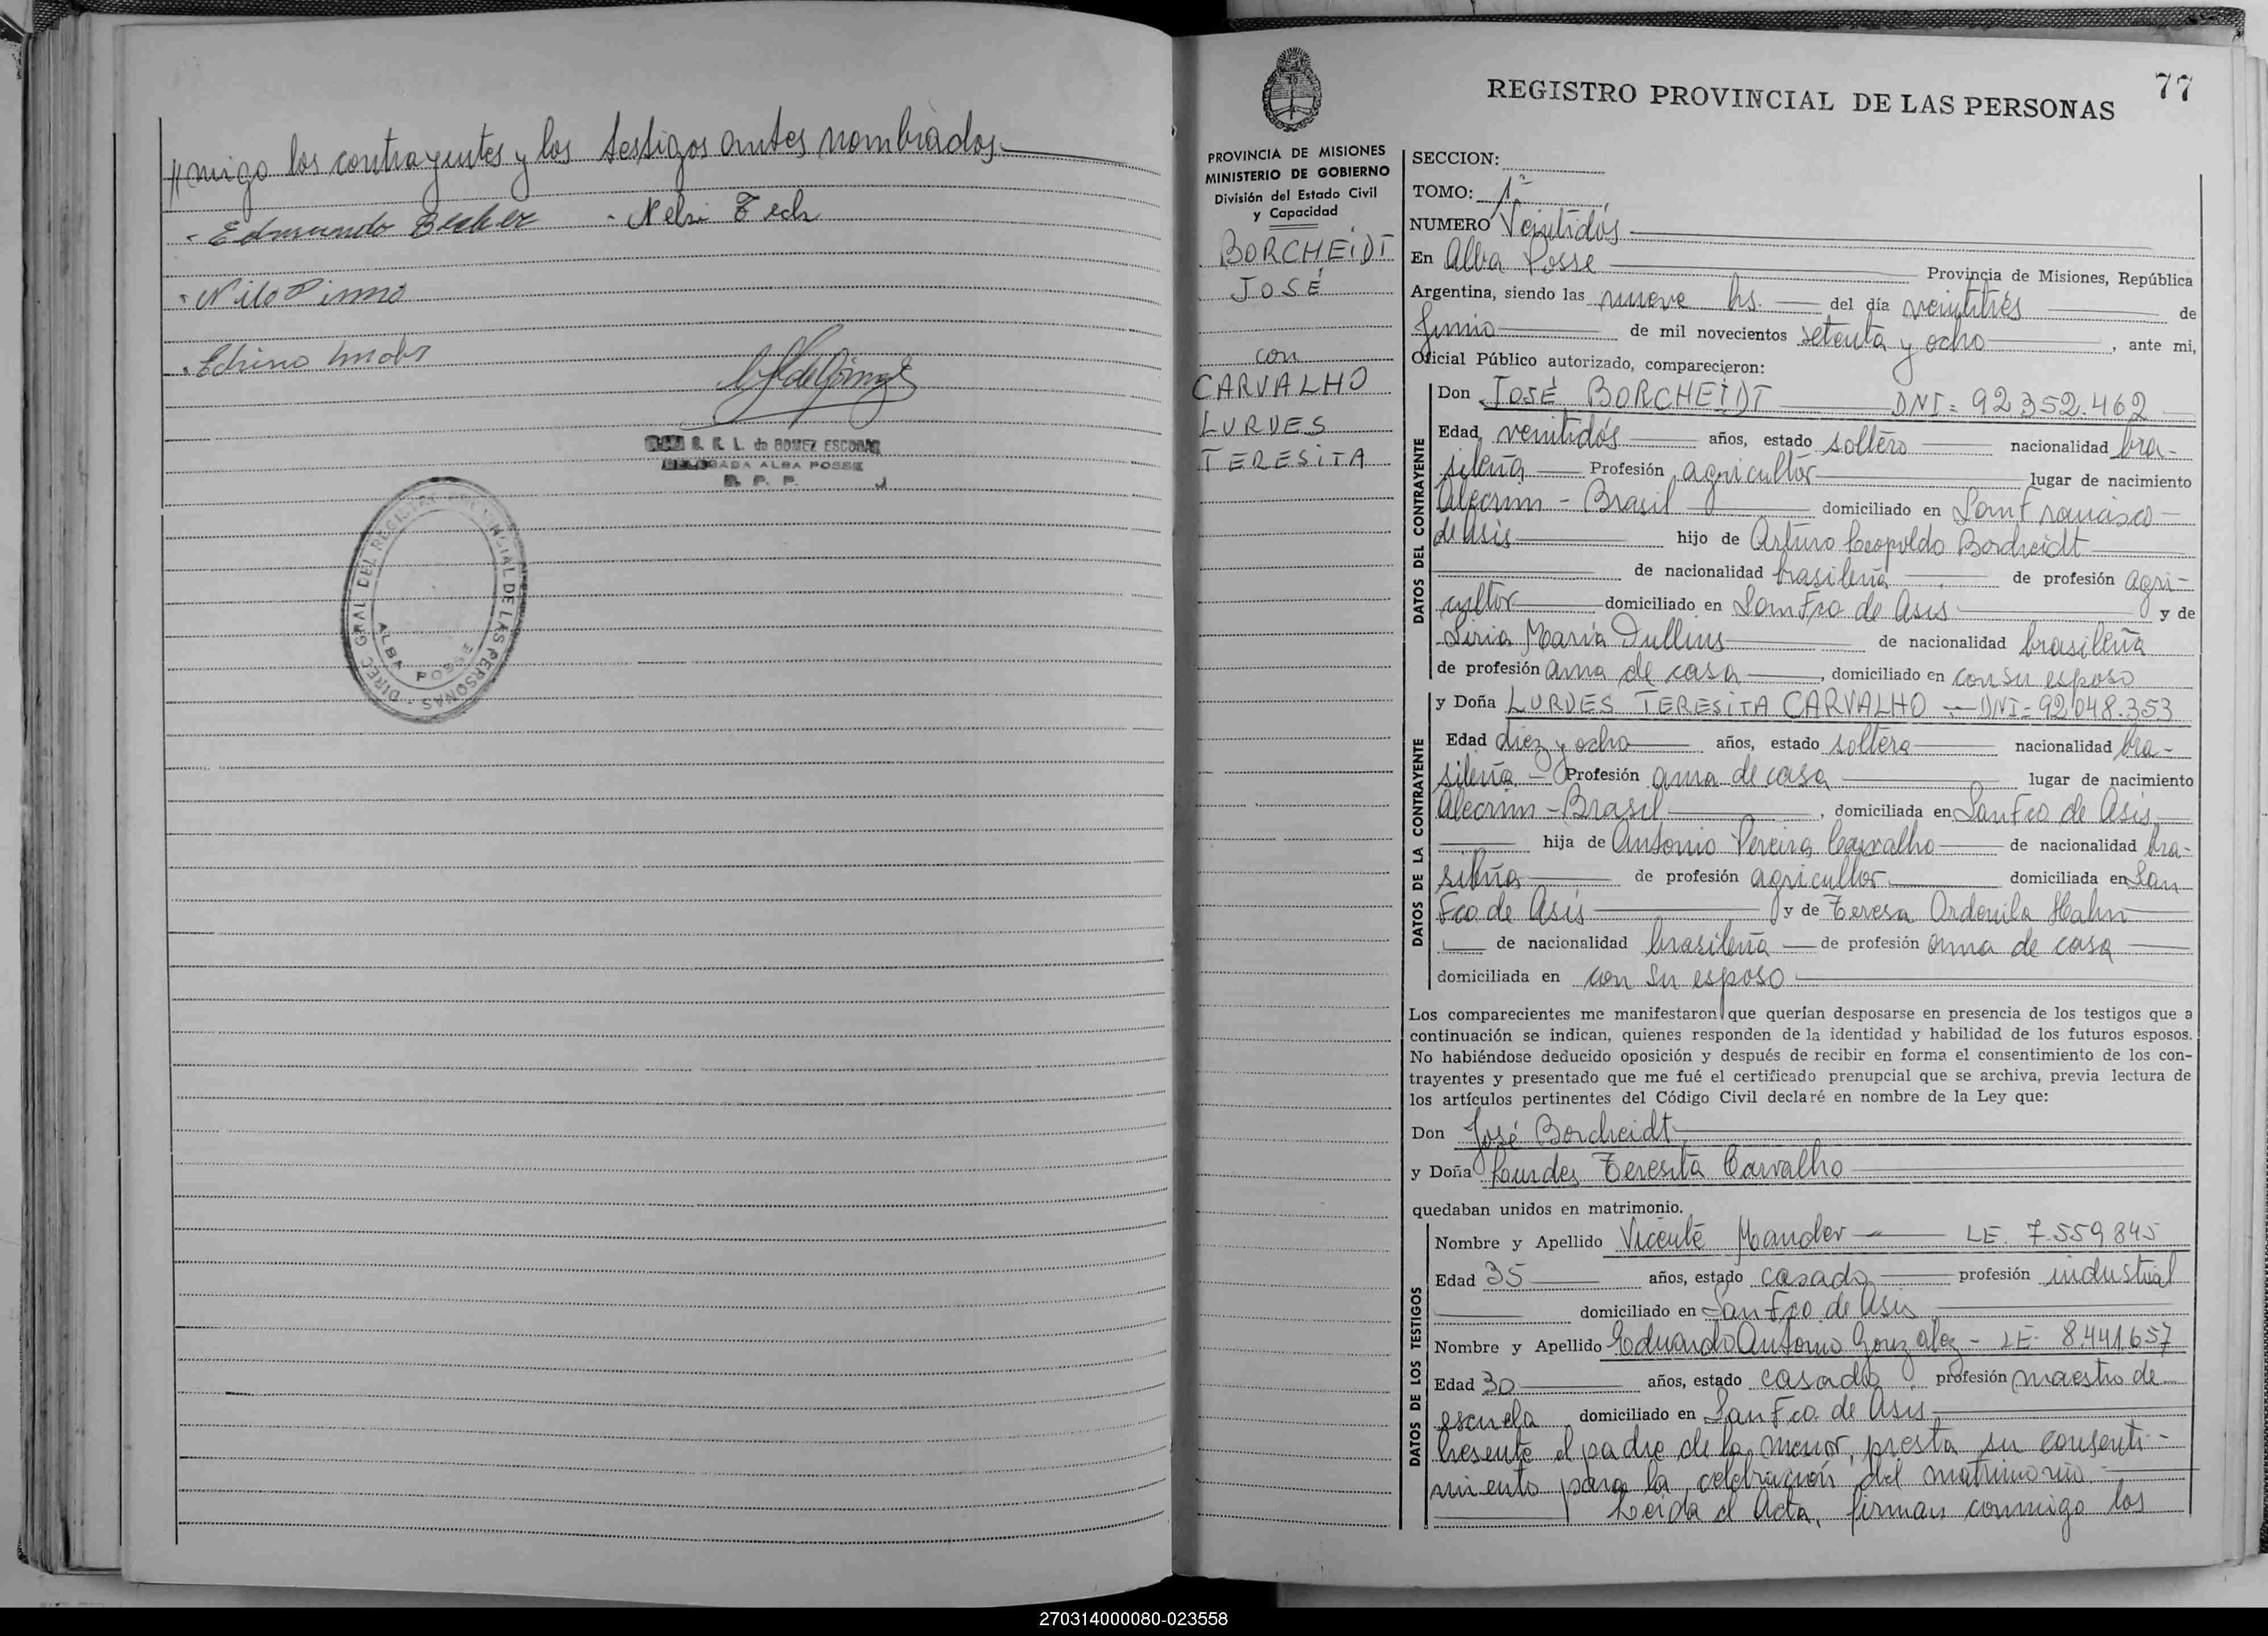 //migo los contrayentes y los testigos antes nombrados.
Edmundo Becker - Nelsi Tech
Nilo Pinno
DE GOMEZ ESCOBAR
DELEGADA ALBA POSSE
R. P. P.
DIREC. GRAL DEL REGISTRO PROVINCIAL DE LAS PERSONAS
ALBA POSSE
77
REGISTRO PROVINCIAL DE LAS PERSONAS
PROVINCIA DE MISIONES
MINISTERIO DE GOBIERNO
División del Estado Civil
y Capacidad
BORCHEIDT
JOSÉ
con
CARVALHO
LURDES
TERESITA
SECCION:
TOMO: 1º
NUMERO Veintidós
En Alba Posse Provincia de Misiones, República
Argentina, siendo las nueve hs. del día veintitrés de
Junio de mil novecientos setenta y ocho, ante mi,
Oficial Público autorizado, comparecieron:
DATOS DEL CONTRAYENTE
Don JOSÉ BORCHEIDT DNI: 92352.462
Edad veintidós años, estado soltero nacionalidad bra-
sileña Profesión agricultor lugar de nacimiento
Alecrim - Brasil domiciliado en San Francisco
de Asis hijo de Arturo Leopoldo Borcheidt
de nacionalidad brasileña de profesión agri-
cultor domiciliado en San Fco de Asis y de
Liria María Dullius de nacionalidad brasileña
de profesión ama de casa, domiciliado en con su esposo
DATOS DE LA CONTRAYENTE
y Doña LURDES TERESITA CARVALHO - DNI: 92.048.353
Edad diez y ocho años, estado soltera nacionalidad bra-
sileña - Profesión ama de casa lugar de nacimiento
Alecrim - Brasil, domiciliada en San Fco de Asis
hija de Antonio Pereira Carvalho de nacionalidad bra-
sileña de profesión agricultor domiciliada en San
Fco de Asis y de Teresa Ordenila Hahn
de nacionalidad brasileña de profesión ama de casa
domiciliada en con su esposo
Los comparecientes me manifestaron que querían desposarse en presencia de los testigos que a
continuación se indican, quienes responden de la identidad y habilidad de los futuros esposos.
No habiéndose deducido oposición y después de recibir en forma el consentimiento de los con-
trayentes y presentado que me fué el certificado prenupcial que se archiva, previa lectura de
los artículos pertinentes del Código Civil declaré en nombre de la Ley que:
Don José Borcheidt
y Doña Lurdes Teresita Carvalho
quedaban unidos en matrimonio.
DATOS DE LOS TESTIGOS
Nombre y Apellido Vicente Mander LE. 7.559845
Edad 35 años, estado casado profesión industrial
domiciliado en San Fco de Asis
Nombre y Apellido Eduardo Antonio Gonzalez - LE. 8.441657
Edad 30 años, estado casado profesión maestro de
escuela domiciliado en San Fco. de Asis
Presente el padre de la menor, presta su consenti-
miento para la celebración del matrimonio
Leída el Acta, firman conmigo los
270314000080-023558